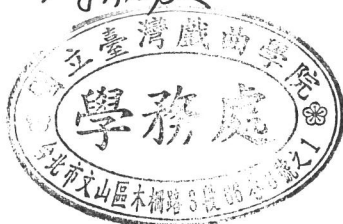 國立臺灣戲曲學院
學務處
台北市文山區木柵路3段66巷8號之1